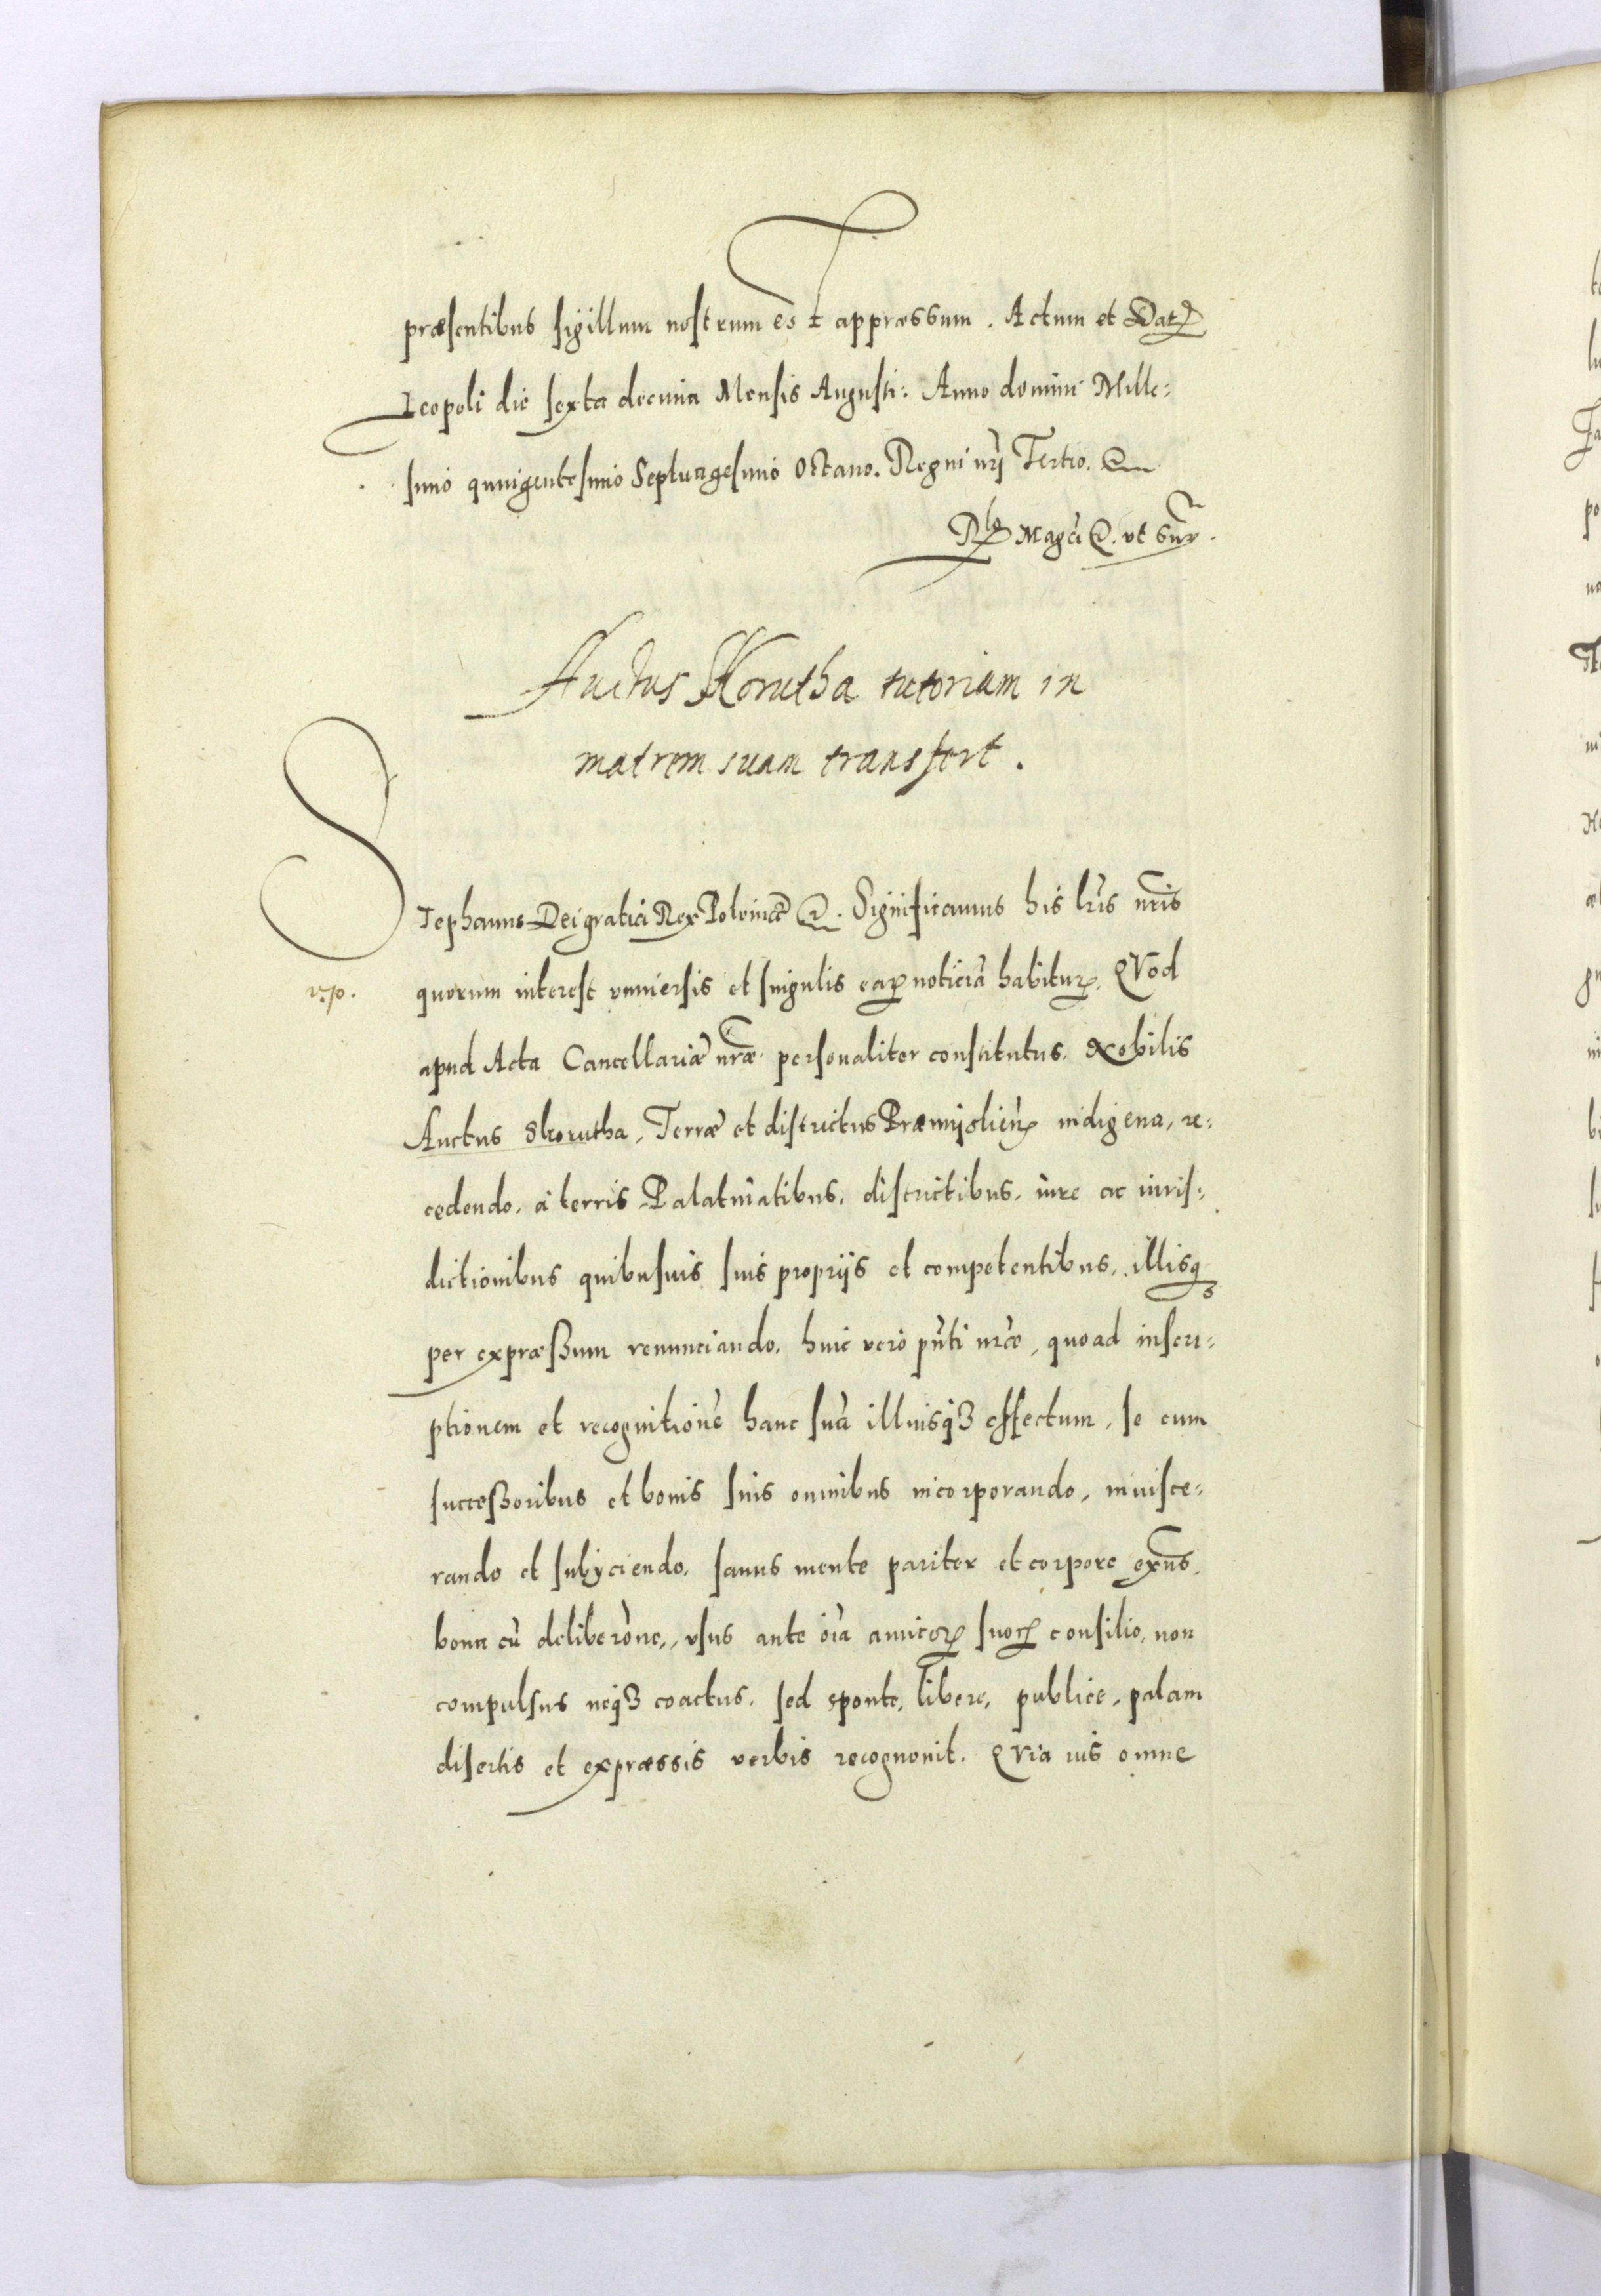 præsentibus sigillum nostrum est appræssum. Actum et Dat
Leopoli die sexta decima Mensis Augusti: Anno domini Mille:
simo quingentesimo Septuagesimo Octavo. Regni nri Tertio. &
Rlo Magci &. ut supr.
Auctus Skorutha tutoriam in
matrem suam transfert.
Stephanus Dei gratia Rex Poloniæ &. Significamus his lris nris
v.p.
quorum interest universis et singulis earꝝ noticiã habiturꝝ. QVod
apud Acta Cancellariæ nræ personaliter constitutus. Nobilis
Auctus Skorutha, Terræ et districtus Præmislienꝝ indigena, re:
cedendo. a terris Palatinatibus, districtibus, iure ac iuris:
dictionibus quibusvis suis proprijs et competentibus, illisqꝫ
per expræßum renunciando. huic vero pñti nræ, quoad inscri:
ptionem et recognitionẽ hanc suã illiusqꝫ effectum, se cum
succeßoribus et bonis suis omnibus incorporando, invisce:
rando et subijciendo. sanus mente pariter et corpore exñs,
bona cũ deliberõne, usus ante õia amicorꝝ suorꝝ consilio, non
compulsus neqꝫ coactus. sed sponte, libere, publice, palam
disertis et expræssis verbis recognovit. QVia ius omne